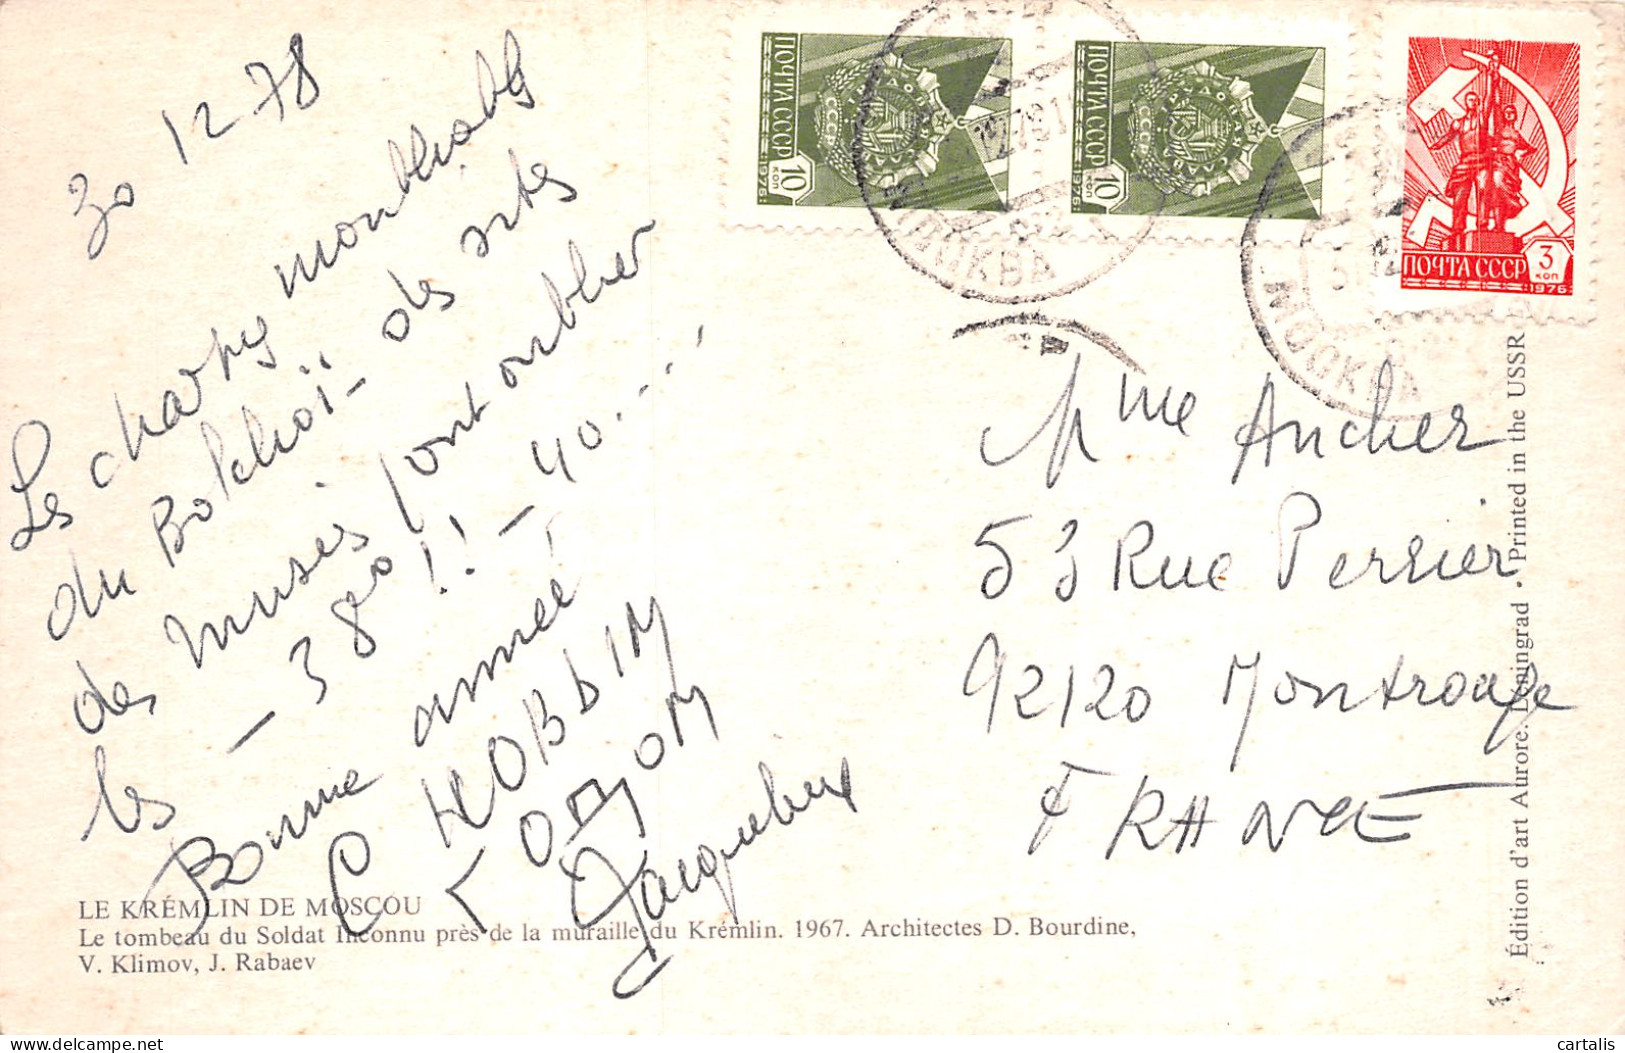 30 12-78
Les charmes inoubliables
du Bolchoï - des arts
des musées font oublier
les - 38° !! - 40....
Bonne année !
С НОВЫМ
ГОДОМ
Jacqueline
Mme Ancher
53 Rue Perrier
92120 Montrouge
FRANCE
ПОЧТА СССР
10 КОП
1976
ТРУДОВАЯ СЛАВА
СССР
ПОЧТА СССР
10 КОП
1976
ТРУДОВАЯ СЛАВА
СССР
ПОЧТА СССР 3 КОП
1976
МОСКВА
МОСКВА
LE KRÉMLIN DE MOSCOU
Le tombeau du Soldat Inconnu près de la muraille du Krémlin. 1967. Architectes D. Bourdine,
V. Klimov, J. Rabaev
Édition d'art Aurore. Leningrad • Printed in the USSR
cartalis